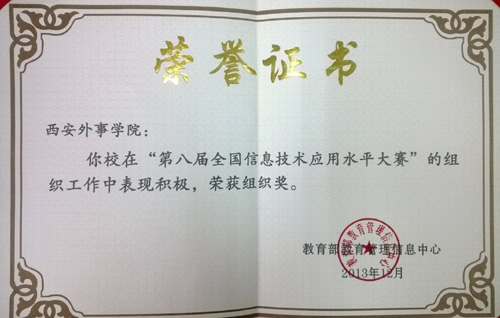 荣誉证书
西安外事学院：
你校在“第八届全国信息技术应用水平大赛”的组
织工作中表现积极，荣获组织奖。
教育部教育管理信息中心
2013年12月